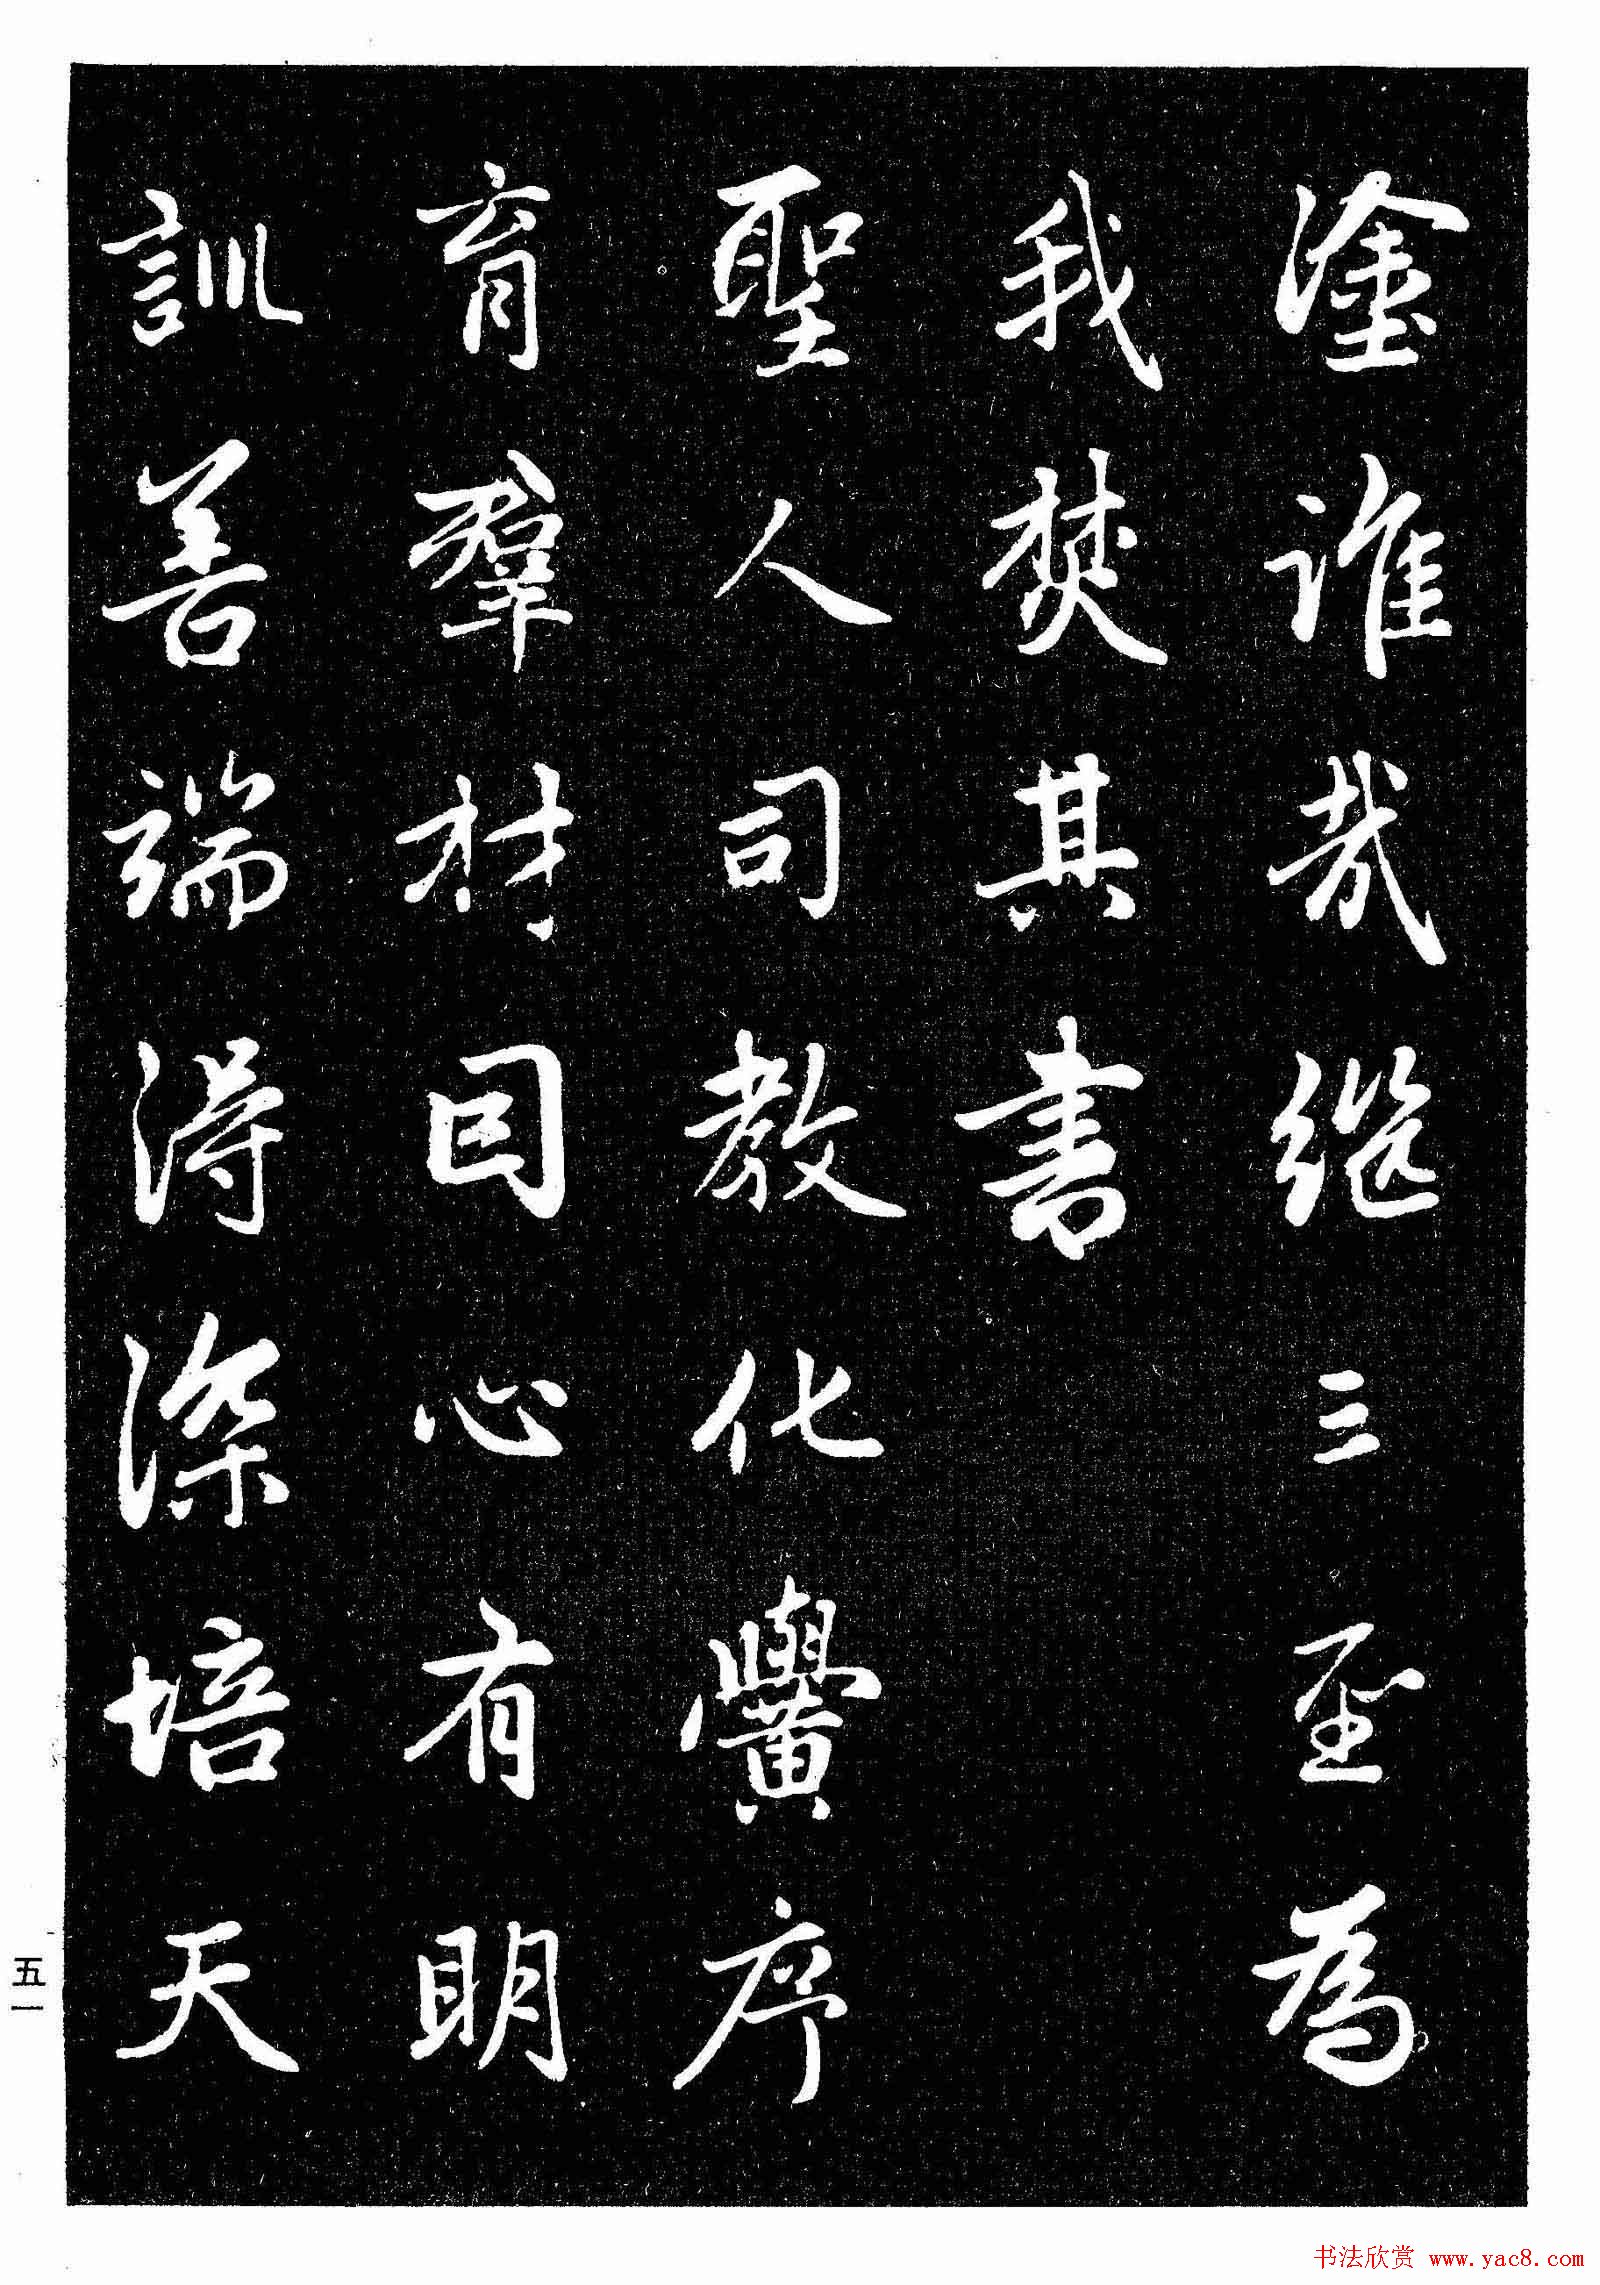 塗誰哉継三聖為
我焚其書
聖人司教化黌序
育羣材囙心有明
訓善端得深培天
五一
书法欣赏 www.yac8.com